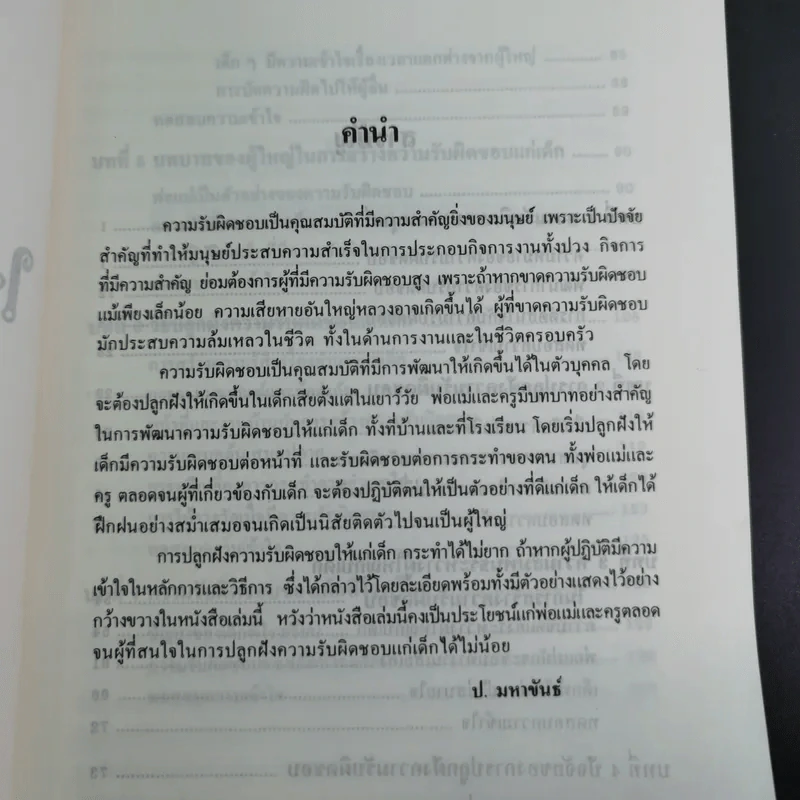 คำนำ
ความรับผิดชอบเป็นคุณสมบัติที่มีความสำคัญยิ่งของมนุษย์ เพราะเป็นปัจจัย
สำคัญที่ทำให้มนุษย์ประสบความสำเร็จในการประกอบกิจการงานทั้งปวง กิจการ
ที่มีความสำคัญ ย่อมต้องการผู้ที่มีความรับผิดชอบสูง เพราะถ้าหากขาดความรับผิดชอบ
แม้เพียงเล็กน้อย ความเสียหายอันใหญ่หลวงอาจเกิดขึ้นได้ ผู้ที่ขาดความรับผิดชอบ
มักประสบความล้มเหลวในชีวิต ทั้งในด้านการงานและในชีวิตครอบครัว
ความรับผิดชอบเป็นคุณสมบัติที่มีการพัฒนาให้เกิดขึ้นได้ในตัวบุคคล โดย
จะต้องปลูกฝังให้เกิดขึ้นในเด็กเสียตั้งแต่ในเยาว์วัย พ่อแม่และครูมีบทบาทอย่างสำคัญ
ในการพัฒนาความรับผิดชอบให้แก่เด็ก ทั้งที่บ้านและที่โรงเรียน โดยเริ่มปลูกฝังให้
เด็กมีความรับผิดชอบต่อหน้าที่ และรับผิดชอบต่อการกระทำของตน ทั้งพ่อแม่และ
ครู ตลอดจนผู้ที่เกี่ยวข้องกับเด็ก จะต้องปฏิบัติตนให้เป็นตัวอย่างที่ดีแก่เด็ก ให้เด็กได้
ฝึกฝนอย่างสม่ำเสมอจนเกิดเป็นนิสัยติดตัวไปจนเป็นผู้ใหญ่
การปลูกฝังความรับผิดชอบให้แก่เด็ก กระทำได้ไม่ยาก ถ้าหากผู้ปฏิบัติมีความ
เข้าใจในหลักการและวิธีการ ซึ่งได้กล่าวไว้โดยละเอียดพร้อมทั้งมีตัวอย่างแสดงไว้อย่าง
กว้างขวางในหนังสือเล่มนี้ หวังว่าหนังสือเล่มนี้คงเป็นประโยชน์แก่พ่อแม่และครูตลอด
จนผู้ที่สนใจในการปลูกฝังความรับผิดชอบแก่เด็กได้ไม่น้อย
ป. มหาขันธ์